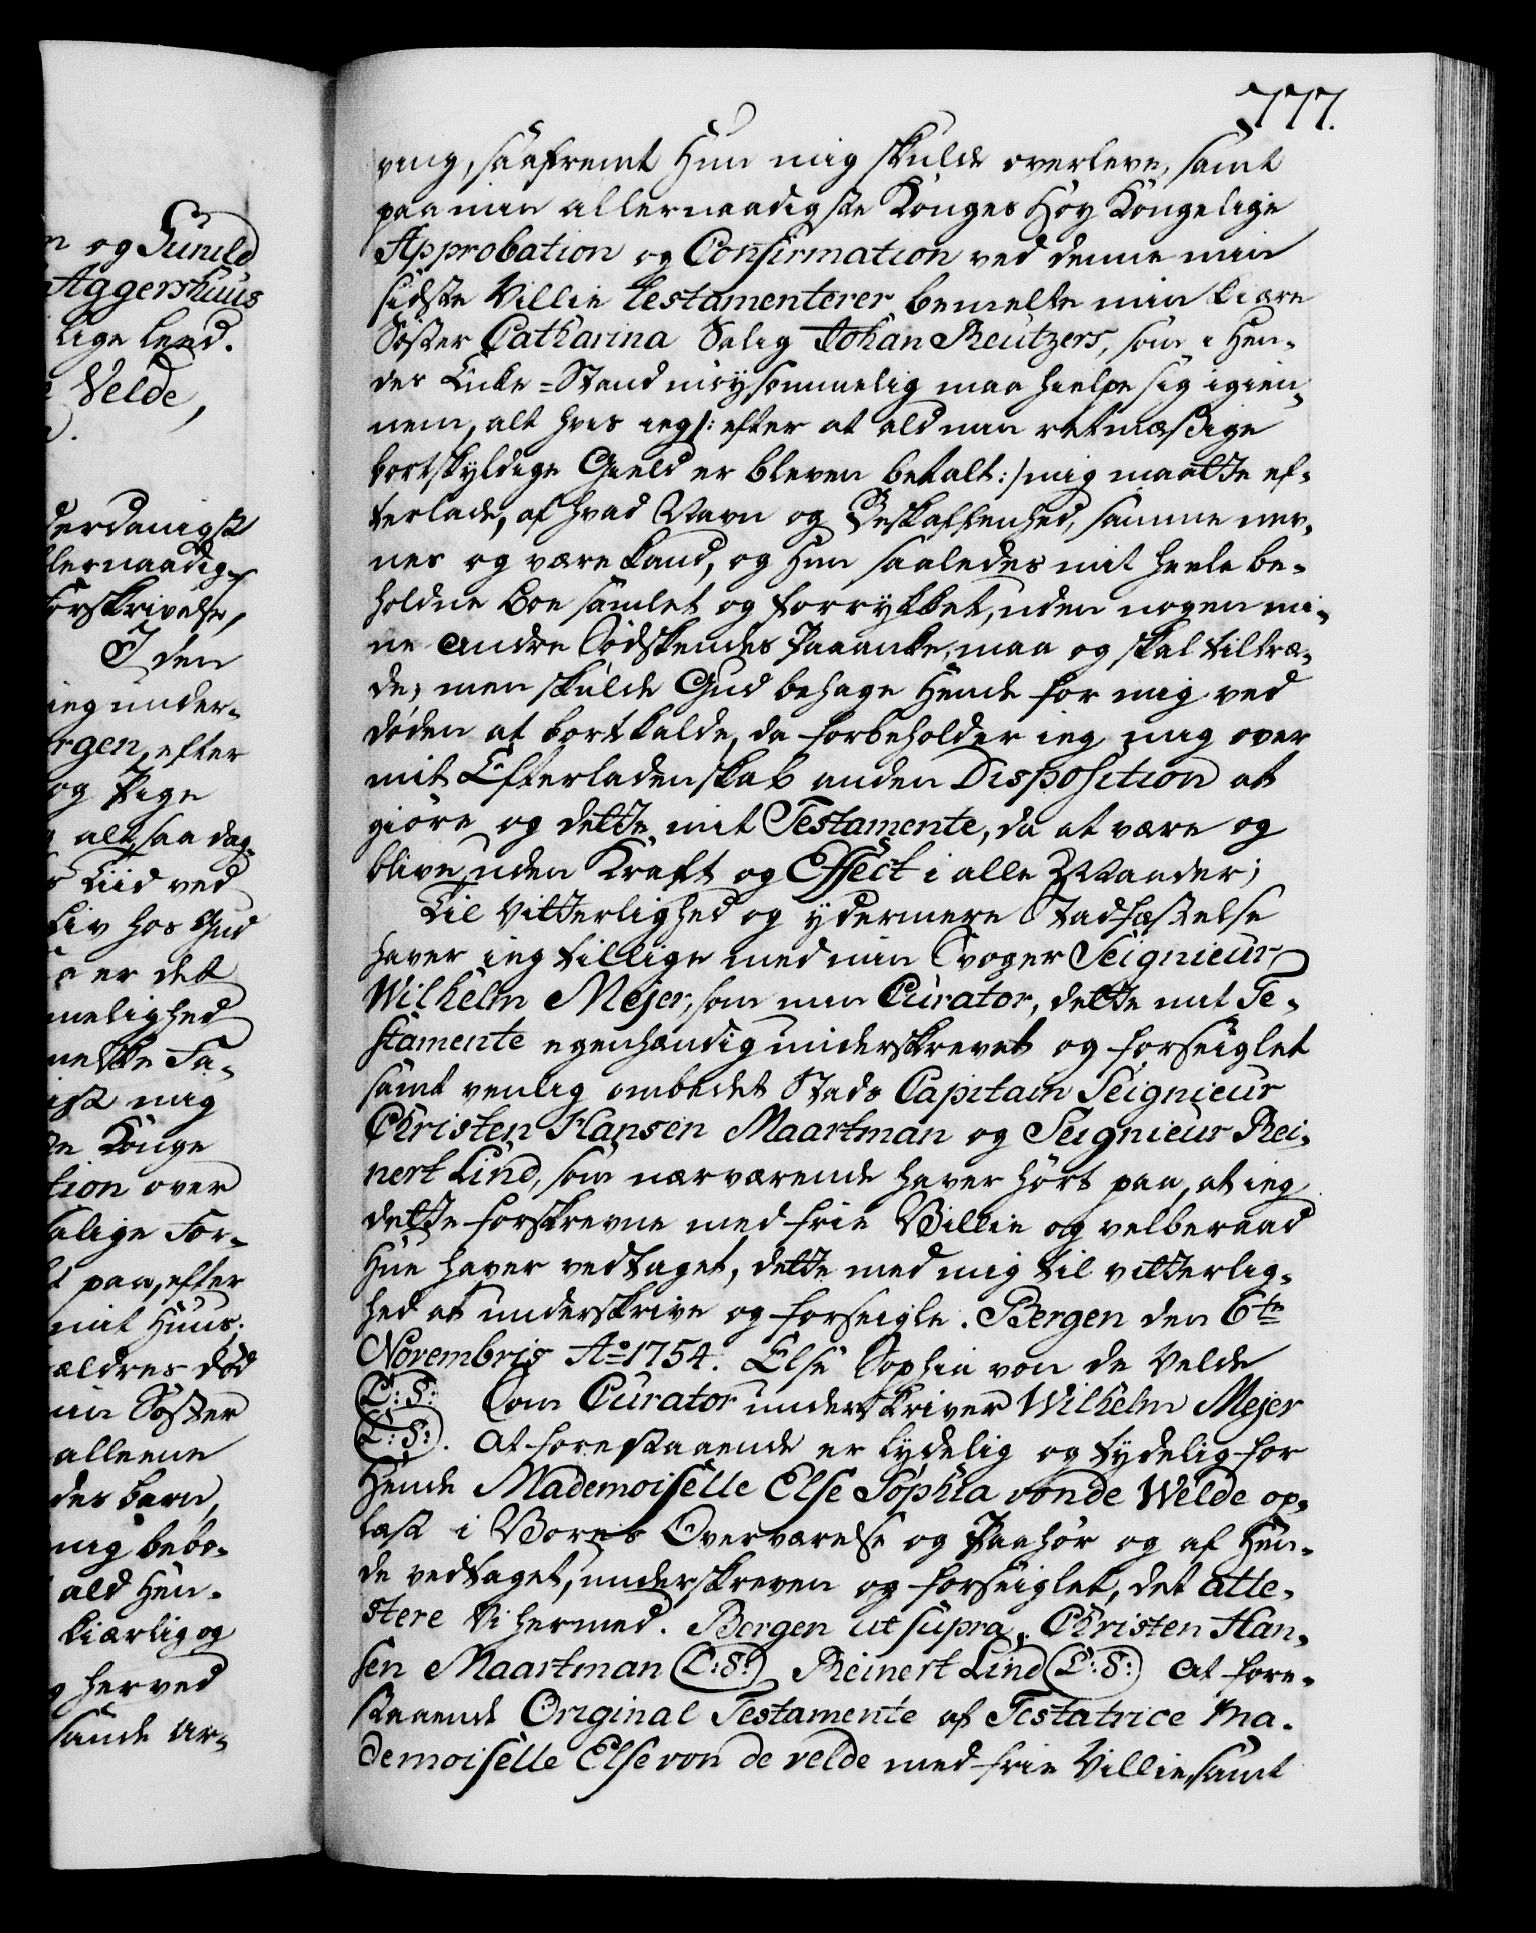 777.
ving, saafremt Hun mig skulde overleve, samt
paa min allernaadigste Konges Høy Kongelige
Approbation og Confirmation ved denne min
sidste Villie testamenterer bemelte min kiære
Søster Catharina Salig Johan Reutzers, som i Hen-
des Enke-Stand møysommelig maa hielpe sig igien-
nem, alt hvis ieg /: efter at ald min retmæssige
bortskyldige Gield er bleven betalt :/ mig maatte ef-
terlade, af hvad Navn og Beskaffenhed, samme nev-
nes og være kand, og Hun saaledes mit heele be-
holdne Boe samlet og forrykket, uden nogen mi-
ne andre Sødskendes Paaanke, maa og skal tiltræ-
de; men skulde Gud behage Hende for mig ved
døden at bortkalde, da forbeholder ieg mig over
mit Efterladenskab anden Disposition at
giøre og dette mit Testamente, da at være og
blive uden Kraft og Effect i alle Maader;
Til Vitterlighed og ydermere Stadfæstelse
haver ieg tillige med min Svoger Seignieur
Wilhelm Mejer, som min Curator, dette mit Te-
stamente egenhændig underskrevet og forseiglet
samt venlig ombedet Stads Capitain Seignieur
Christen Hansen Maartman og Seignieur Rei-
nert Lind, som nærværende haver hørt paa, at ieg
dette forskrevne med frie Villie og velberaad
Hue haver vedtaget, dette med mig til vitterlig-
hed at underskrive og forseigle. Bergen den 6te
Novembris Ao 1754. Else Sophia von de Velde
(L:S:) Som Curator underskriver Wilhelm Mejer
(L:S:). At forestaaende er lydelig og tydelig for
Hende Mademoiselle Else Sophia von de Welde op-
læst i Vores Overværelse og Paahør og af Hen-
de vedtaget, underskreven og forseiglet, det atte-
stere Vi hermed. Bergen ut supra. Christen Han-
sen Maartman (L:S:) Reinert Lind (L:S:) At fore-
staaende Original Testamente af Testatrice Ma-
demoiselle Else von de velde med frie Villie, samt
og Gunild
Aggershuus
lige leed.
Velde,
I den
ieg under-
efter
og Pige
alt saa dag-
Liid ved
Liv hos Gud
er det
mig
Konge
tion over
salige For-
paa, efter
mit Huus;
ældres død
Søster
alleene
des barn,
mig bebo-
ald Hen-
kiærlig og
herved